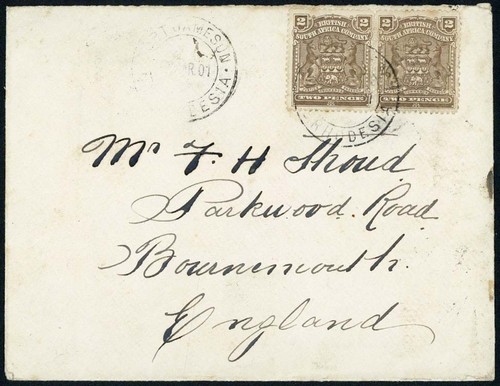 JAMESON
R.01
DESIA.
2 BRITISH 2
SOUTH AFRICA COMPANY
TWO PENCE
2 BRITISH 2
SOUTH AFRICA COMPANY
TWO PENCE
RHODESIA
Mr F H Shoud
Parkwood Road
Bournemouth.
England